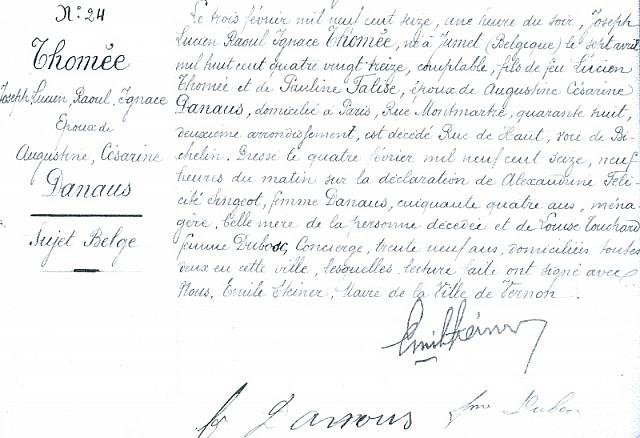 N° 24
Thomée
Joseph Lucien, Raoul, Ignace
Epoux de
Augustine, Césarine
Danaus
Sujet Belge
Le trois février mil neuf cent seize, une heure du soir, Joseph
Lucien Raoul Ignace Thomée, né à Jumet (Belgique) le sept avril
mil huit cent quatre vingt treize, comptable, fils de feu Lucien
Thomée et de Pauline Falise, époux de Augustine Césarine
Danaus, domicilié à Paris, Rue Montmartre, quarante huit,
deuxième arrondissement, est décédé Rue de Haut, voie de Bi-
chelin. Dressé le quatre février mil neuf cent seize, neuf
heures du matin sur la déclaration de Alexandrine Féli-
cité Singeot, femme Danaus, cinquante quatre ans, ména-
gère, belle mère de la personne décédée et de Louise Touchard
femme Dubosc, Concierge, trente neuf ans, domiciliées toutes
deux en cette ville, lesquelles, lecture faite ont signé avec
Nous, Emile Steiner, Maire de la Ville de Vernon.
fe Danaus fme Dubosc